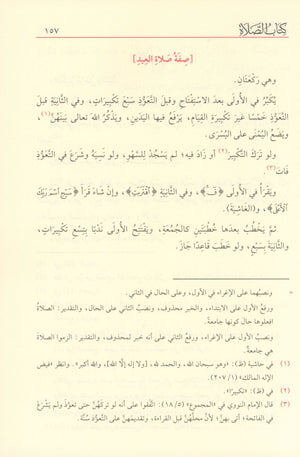 كتاب الصلاة
١٥٧
[صِفَةُ صَلاةِ العِيدِ]
وهي رَكْعَتَانِ.
يُكَبِّرُ في الأُولَى بعدَ الاسْتِفْتاحِ وقبلَ التَّعَوُّذِ سَبْعَ تَكْبِيرَاتٍ، وفي الثَّانِيَةِ قبلَ
التَّعَوُّذِ خَمْسًا غيرَ تَكْبِيرَةِ القِيَامِ، يَرْفَعُ فيها اليَدَينِ، ويَذْكُرُ اللهَ تعالى بَينَهُنَّ(١)،
ويَضَعُ اليُمْنَى على اليُسْرَى.
ولو تَرَكَ التَّكْبِيرَ(٢) أو زَادَ فيه؛ لم يَسْجُدْ لِلسَّهْوِ، ولو نَسِيَهُ وشَرَعَ في التَّعَوُّذِ
فَاتَ(٣).
ويَقْرَأُ في الأُولَى ﴿قٓ﴾، وفي الثَّانِيَةِ ﴿ٱقۡتَرَبَتِ﴾، وإن شَاءَ قَرَأَ ﴿سَبِّحِ ٱسۡمَ رَبِّكَ
ٱلۡأَعۡلَى﴾، و(الغَاشِيَةَ).
ثمَّ يَخْطُبُ بعدَها خُطْبَتَينِ كالجُمُعَةِ، ويَفْتَتِحُ الأُولَى نَدْبًا بِتِسْعِ تَكْبِيرَاتٍ،
والثَّانِيَةَ بِسَبْعٍ، ولو خَطَبَ قَاعِدًا جَازَ.
= ونصبُهما على الإغراء في الأول، وعلى الحال في الثاني.
ورفعُ الأول على الابتداء، والخبر محذوف، ونصبُ الثاني على الحال، والتقدير: الصلاةُ
افعلوها حال كونها جامعةً.
ونصبُ الأول على الإغراء، ورفعُ الثاني على أنه خبر لمحذوف، والتقدير: الزموا الصلاةَ
هي جامعةٌ.
(١) في حاشية (ظ): «وهو سبحان الله، والحمد لله، [ولا إله إلَّا الله]، والله أكبر». وانظر «فيض
الإله المالك» (١/ ٢٠٧).
(٢) في (ظ): «تكبيرًا».
(٣) قال الإمام النووي في «المجموع» (٥/ ١٨): اتَّفقوا على أنه لو تركهُنَّ حتى تعوَّذَ ولم يَشْرَعْ
في الفاتحة؛ أتى بهنَّ؛ لأنَّ محلَّهُنَّ قبل القراءة، وتقديمهنَّ على التعوُّذِ سُنَّة.